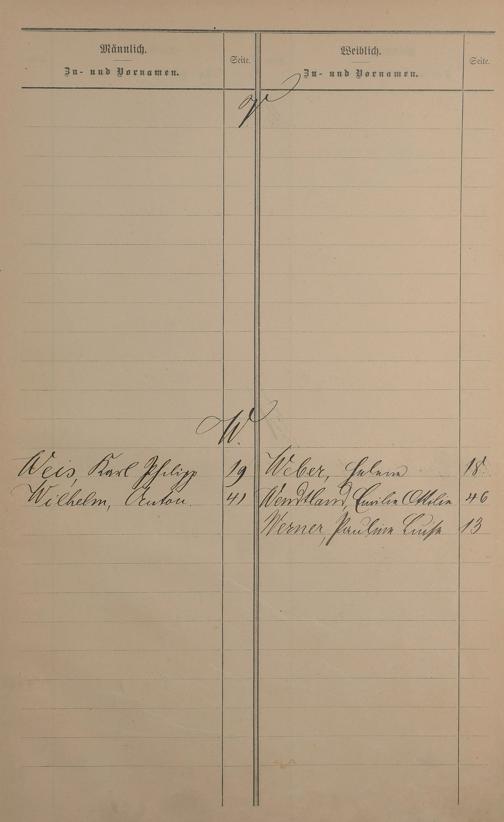 Männlich.
Zu- und Vornamen.
Seite.
Weiblich.
Zu- und Vornamen.
Seite.
V
W.
Weis, Karl Philipp 19
Wilhelm, Anton 41
Weber, Helene 18
Wendtland, Emilie Ottilie 46
Werner, Pauline Luise 13